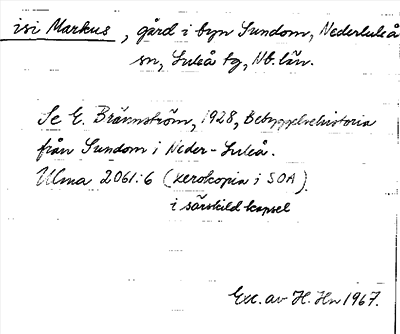 isi Markus, gård i byn Sundom, Nederluleå
sn, Luleå tg, Nb. län.
Se E. Brännström, 1928, Bebyggelsehistoria
från Sundom i Neder-Luleå.
Ulma 2061:6 (xerokopia i SOA)
i särskild kapsel
Exc. av H. Hn 1967.